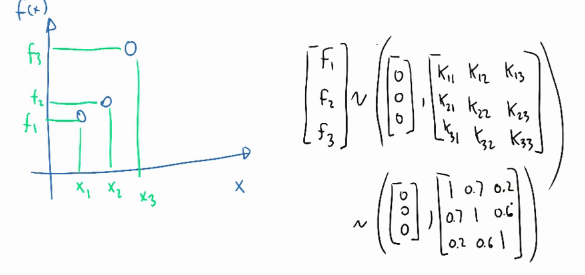 f(x)
f₃
f₂
f₁
x₁ x₂ x₃
x
[f₁ f₂ f₃] ~ ([0 0 0], [K₁₁ K₁₂ K₁₃
K₂₁ K₂₂ K₂₃
K₃₁ K₃₂ K₃₃])
~ ([0 0 0], [1 0.7 0.2
0.7 1 0.6
0.2 0.6 1])